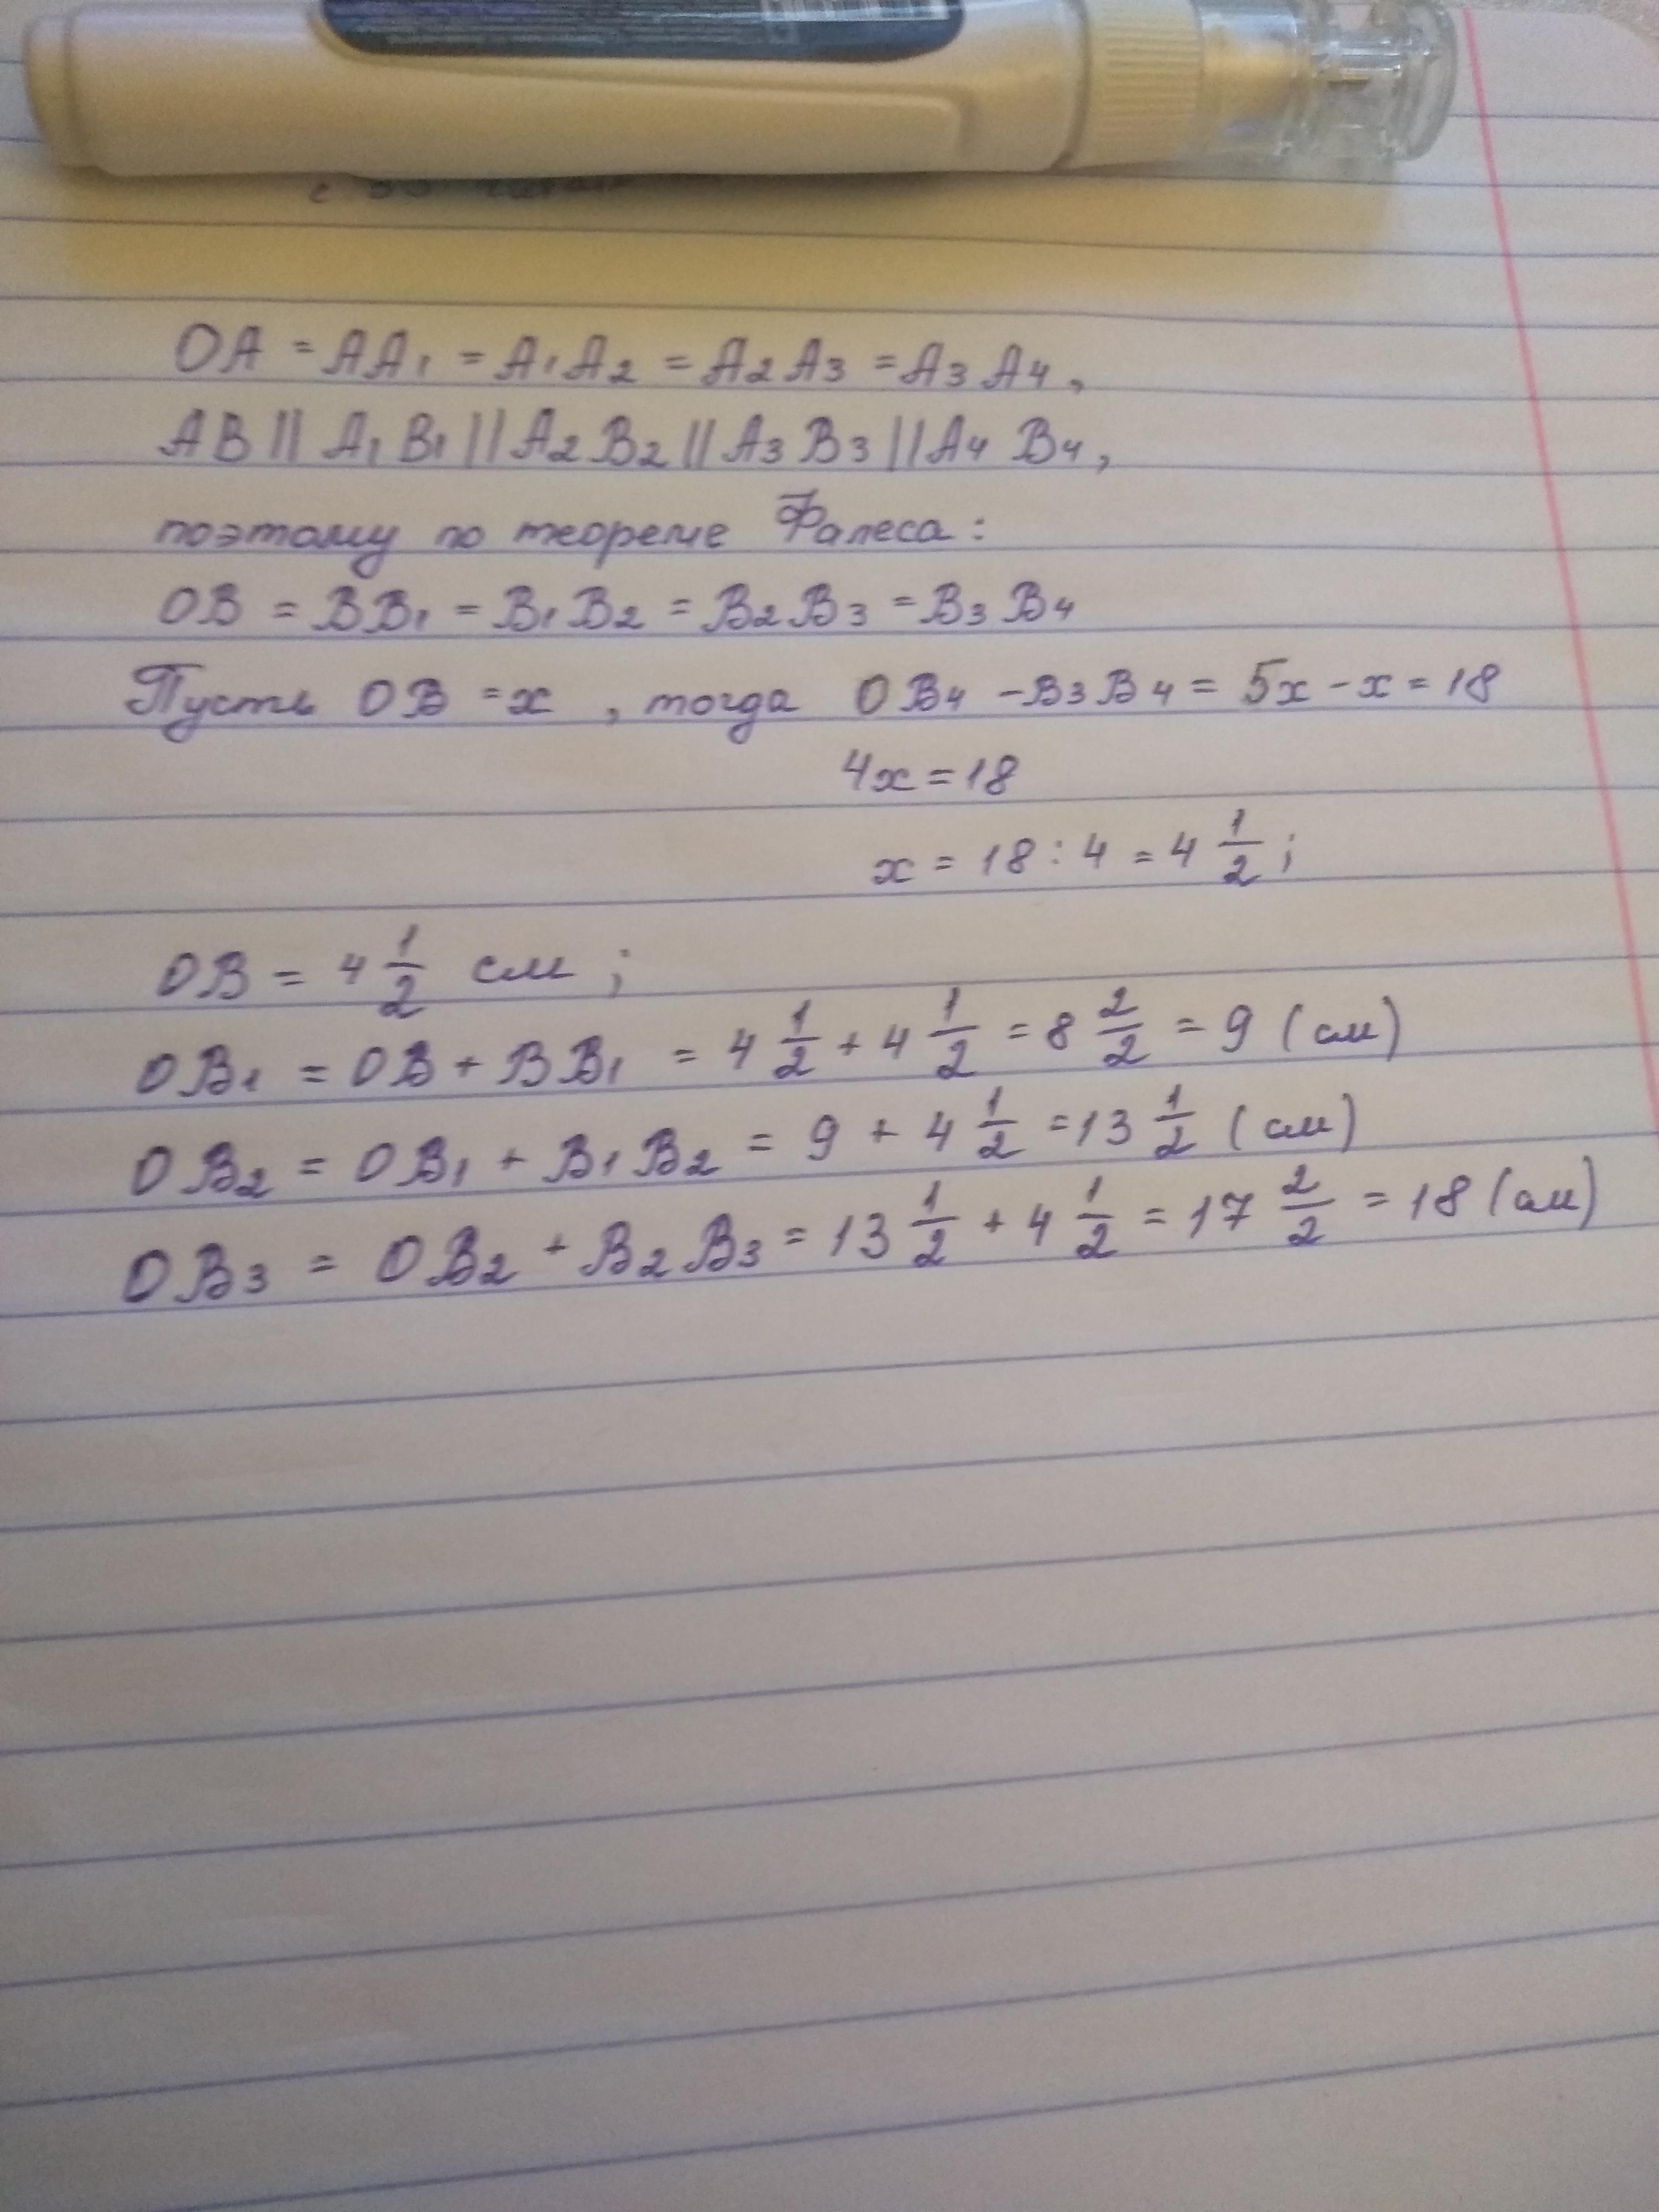 OA = AA₁ = A₁A₂ = A₂A₃ = A₃A₄,
AB || A₁B₁ || A₂B₂ || A₃B₃ || A₄B₄,
поэтому по теореме Фалеса:
OB = BB₁ = B₁B₂ = B₂B₃ = B₃B₄
Пусть OB = x, тогда OB₄ - B₃B₄ = 5x - x = 18
4x = 18
x = 18 : 4 = 4 1/2;
OB = 4 1/2 см;
OB₁ = OB + BB₁ = 4 1/2 + 4 1/2 = 8 2/2 = 9 (см)
OB₂ = OB₁ + B₁B₂ = 9 + 4 1/2 = 13 1/2 (см)
OB₃ = OB₂ + B₂B₃ = 13 1/2 + 4 1/2 = 17 2/2 = 18 (см)